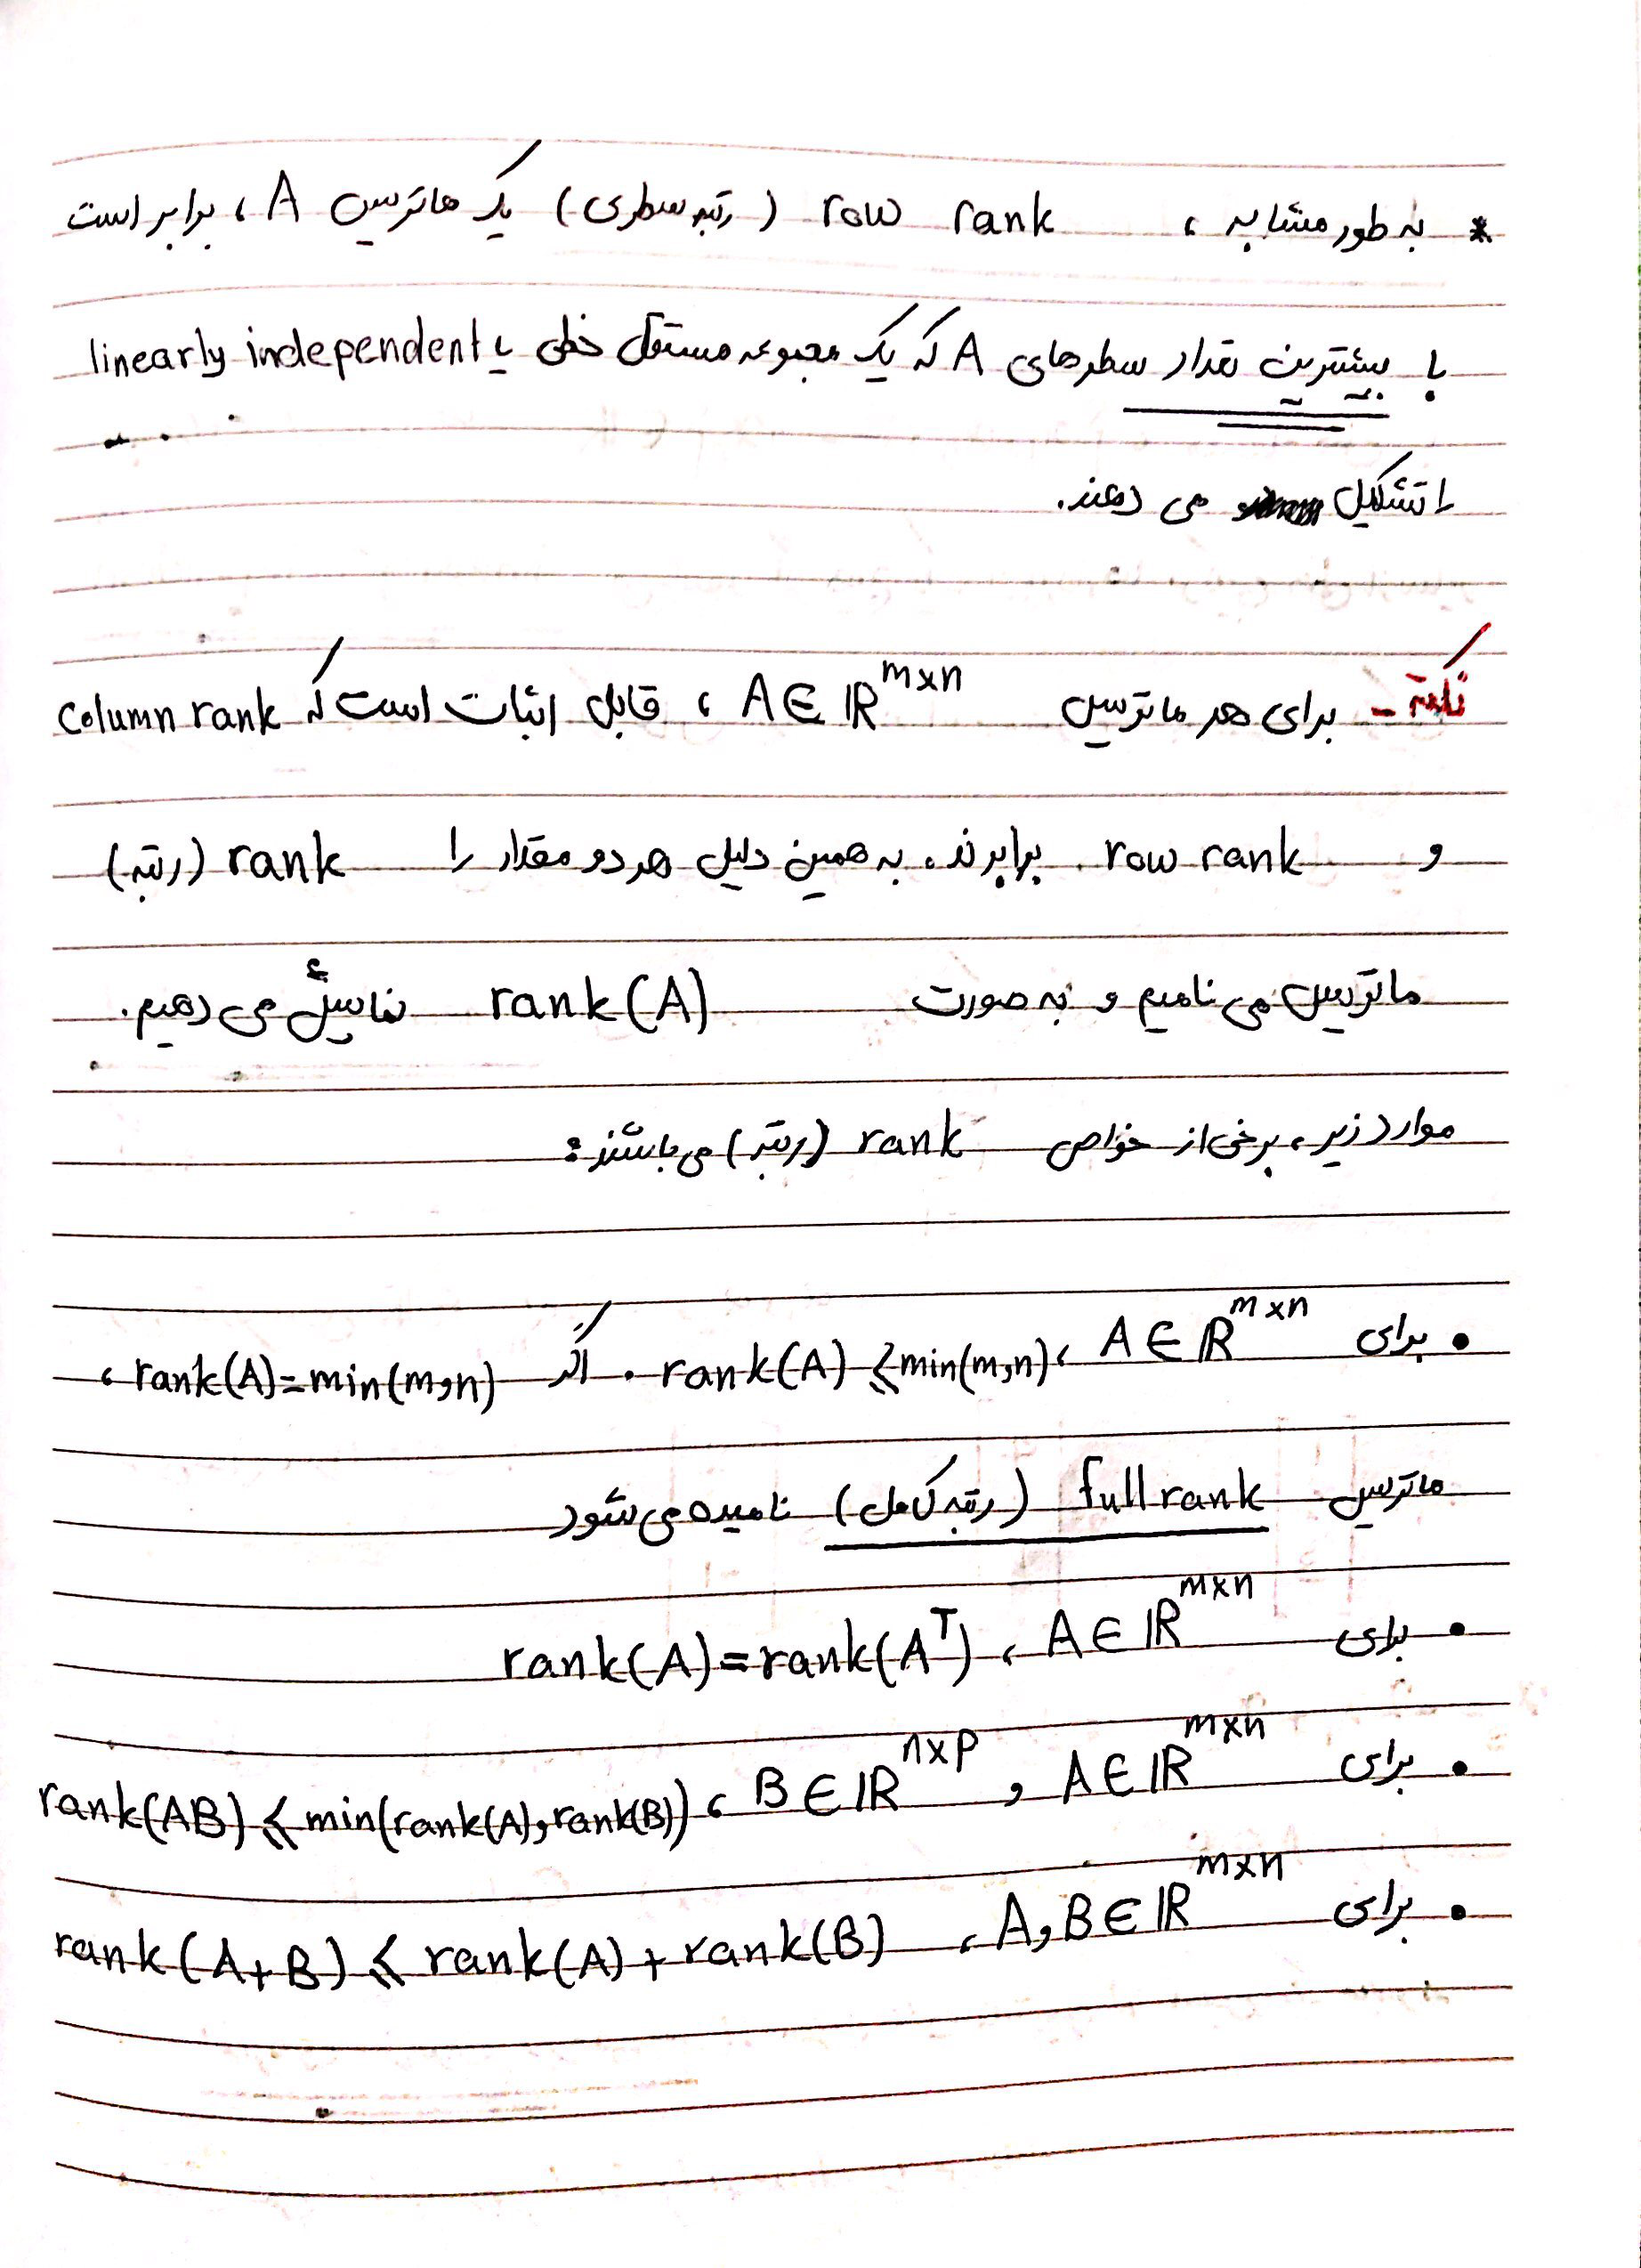 * به طور مشابه ، row rank (رتبه سطری) یک ماتریس A ، برابر است
با بیشترین تعداد سطرهای A که یک مجموعه مستقل خطی یا linearly independent
را تشکیل می دهند.
نکته - برای هر ماتریس A ∈ ℝ^{m×n} ، قابل اثبات است که column rank
و row rank برابرند ، به همین دلیل هر دو مقدار را rank (رتبه)
ماتریس می نامیم و به صورت rank(A) نمایش می دهیم.
موارد زیر ، برخی از خواص rank (رتبه) می باشند :
• برای A ∈ ℝ^{m×n} ، rank(A) ≤ min(m,n) . اگر rank(A)=min(m,n) ،
ماتریس full rank (رتبه کامل) نامیده می شود
• برای A ∈ ℝ^{m×n} ، rank(A)=rank(A^T)
• برای A ∈ ℝ^{m×n} و B ∈ ℝ^{n×p} ، rank(AB) ≤ min(rank(A),rank(B))
• برای A,B ∈ ℝ^{m×n} ، rank(A+B) ≤ rank(A)+rank(B)